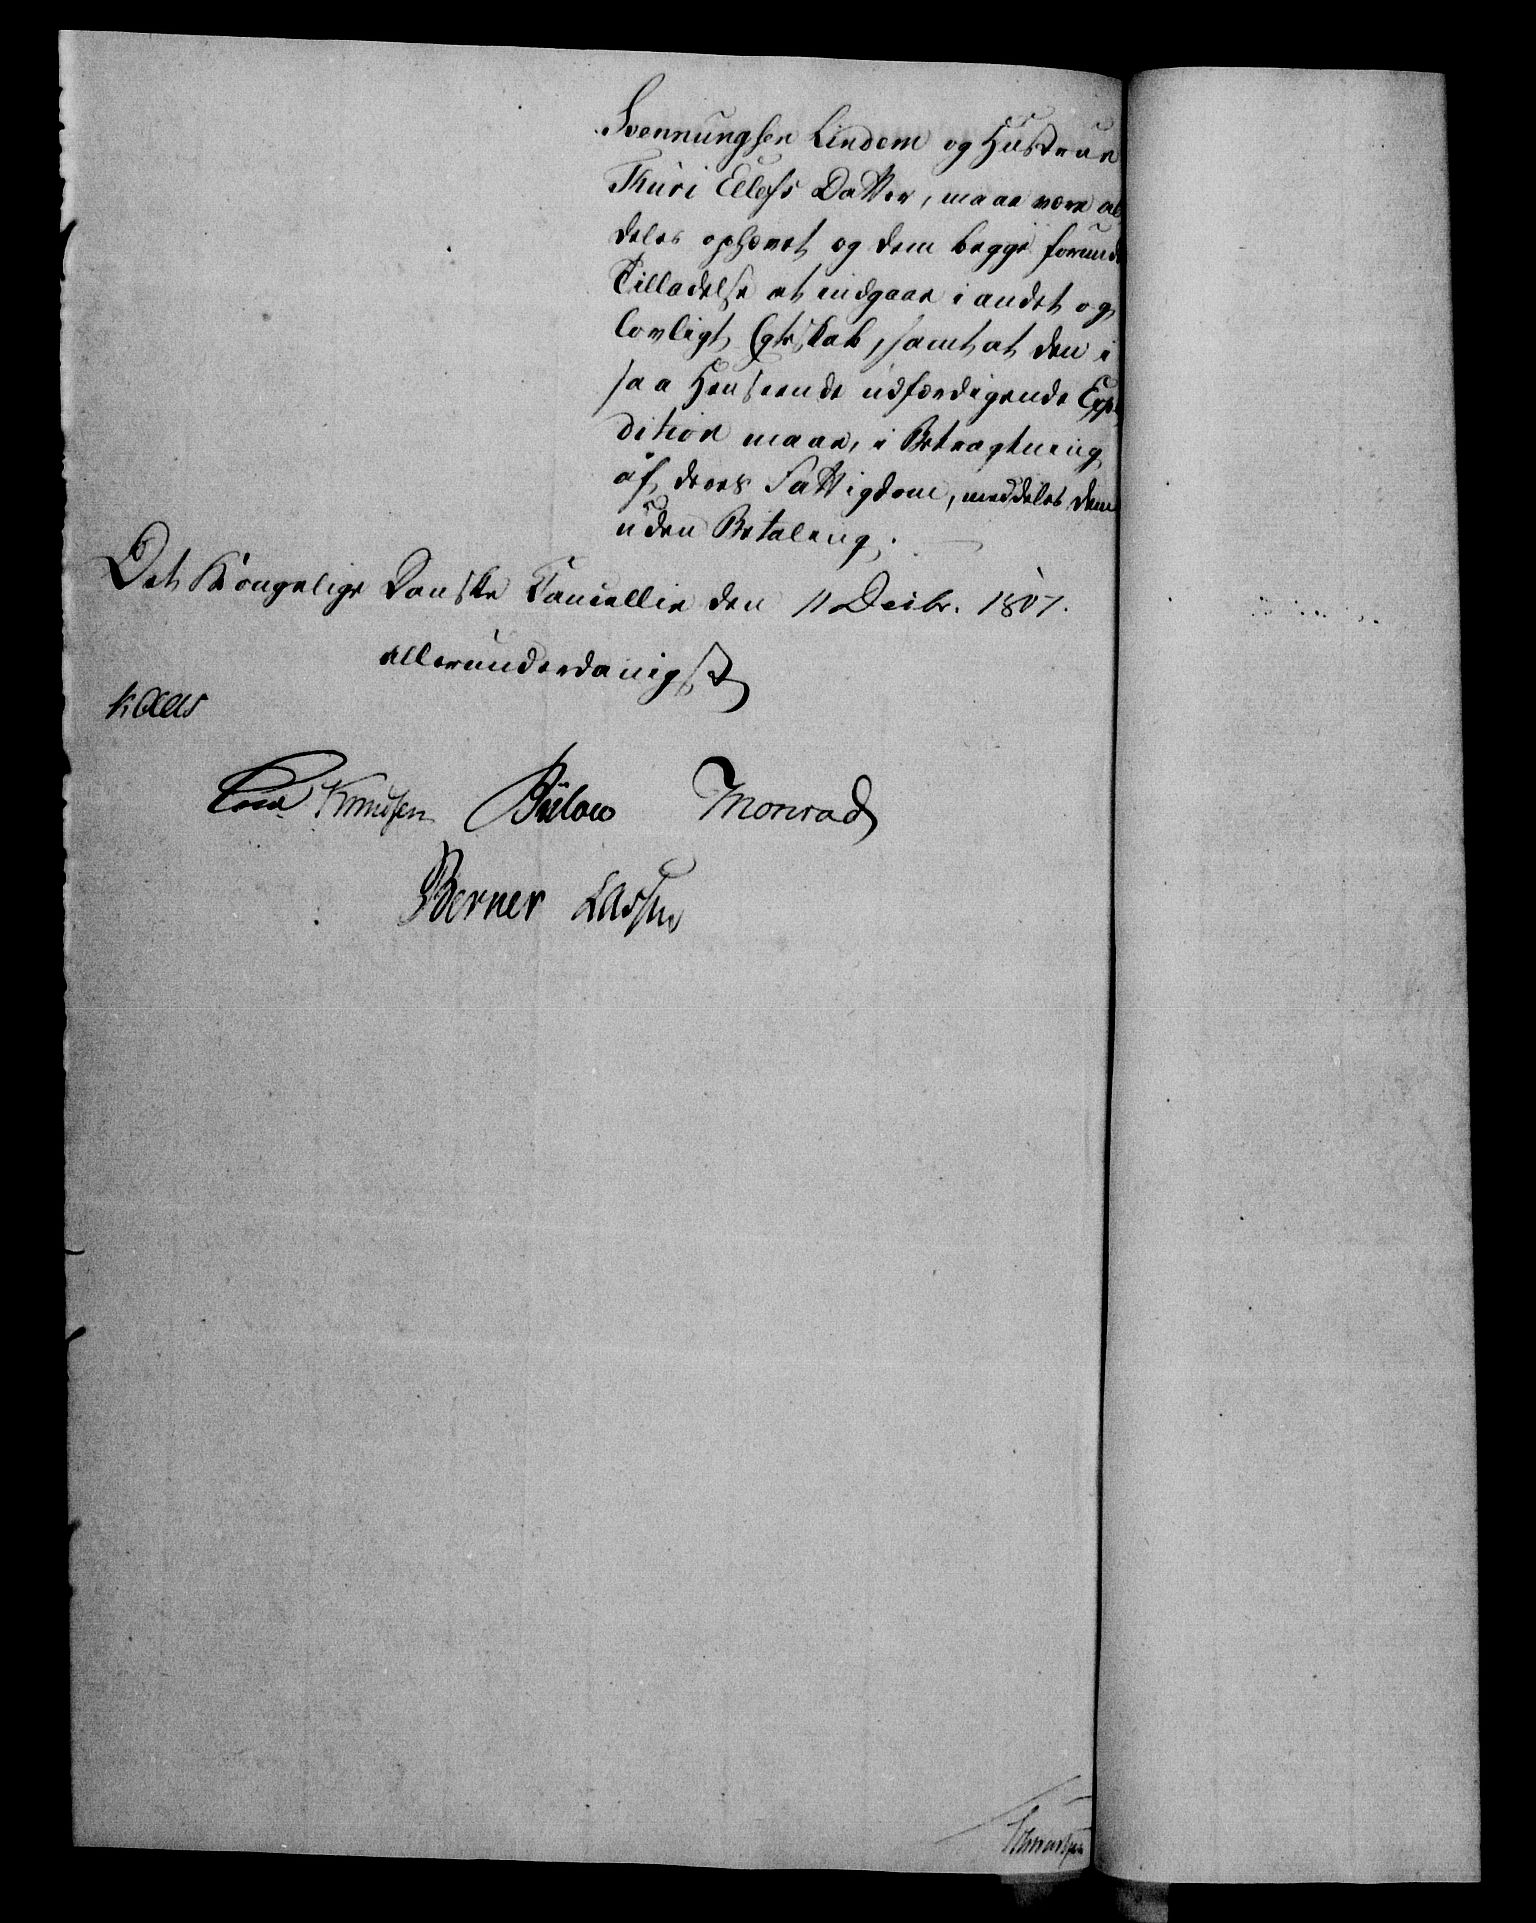 Svennungsen Lindem og Hustrue
Thuri Ellefs Datter, maae være al
deles ophævet og dem begge forund
Tilladelse at indgaae i andet og
lovligt Egteskab, samt at den i
saa Henseende udfærdigende Expe
dition maae, i Betragtning
af deres Fattigdom, meddeles dem
uden Betaling.
Det Kongelige Danske Cancellie den 11 Decbr. 1807.
allerunderdanigst
Kaas
Knudsen Bülow Monrad
Berner Lassen